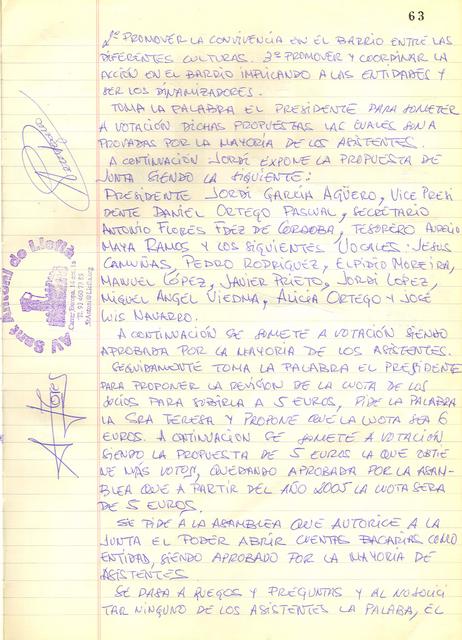 63
2º PROMOVER LA CONVIVENCIA EN EL BARRIO ENTRE LAS
DIFERENTES CULTURAS. 3º PROMOVER Y COORDINAR LA
ACCIÓN EN EL BARRIO IMPLICANDO A LAS ENTIDADES Y
SER LOS DINAMIZADORES.
TOMA LA PALABRA EL PRESIDENTE PARA SOMETER
A VOTACIÓN DICHAS PROPUESTAS LAS CUALES SON A
PROVADAS POR LA MAYORIA DE LOS ASISTENTES.
A CONTINUACIÓN JORDI EXPONE LA PROPUESTA DE
JUNTA SIENDO LA SIGUIENTE:
PRESIDENTE JORDI GARCÍA AGÜERO, VICE PRESI
DENTE DANIEL ORTEGO PASCUAL, SECRETARIO
ANTONIO FLORES FDEZ DE CÓRDOBA, TESORERO AURELIO
MAYA RAMOS Y LOS SIGUIENTES VOCALES: JESUS
CAMUÑAS, PEDRO RODRIGUEZ, ELPIDIO MOREIRA,
MANUEL LÓPEZ, JAVIER PRIETO, JORDI LOPEZ,
MIGUEL ANGEL VIEDMA, ALICIA ORTEGO Y JOSÉ
LUIS NAVARRO.
A CONTINUACIÓN SE SOMETE A VOTACIÓN SIENDO
APROBADA POR LA MAYORIA DE LOS ASISTENTES.
SEGUIDAMENTE TOMA LA PALABRA EL PRESIDENTE
PARA PROPONER LA REVISIÓN DE LA CUOTA DE LOS
SOCIOS PARA SUBIRLA A 5 EUROS, PIDE LA PALABRA
LA SRA TERESA Y PROPONE QUE LA CUOTA SEA 6
EUROS. A CONTINUACION SE SOMETE A VOTACIÓN
SIENDO LA PROPUESTA DE 5 EUROS LA QUE OBTIE
NE MÁS VOTOS, QUEDANDO APROBADA POR LA ASAM-
BLEA QUE A PARTIR DEL AÑO 2005 LA CUOTA SERA
DE 5 EUROS.
SE PIDE A LA ASAMBLEA QUE AUTORICE A LA
JUNTA EL PODER ABRIR CUENTAS BACARIAS COMO
ENTIDAD, SIENDO APROBADO POR LA MAYORIA DE
ASISTENTES
SE PASA A RUEGOS Y PREGUNTAS Y AL NO SOLICI
TAR NINGUNO DE LOS ASISTENTES LA PALABA, EL
AV Sant Antoni de Llefià